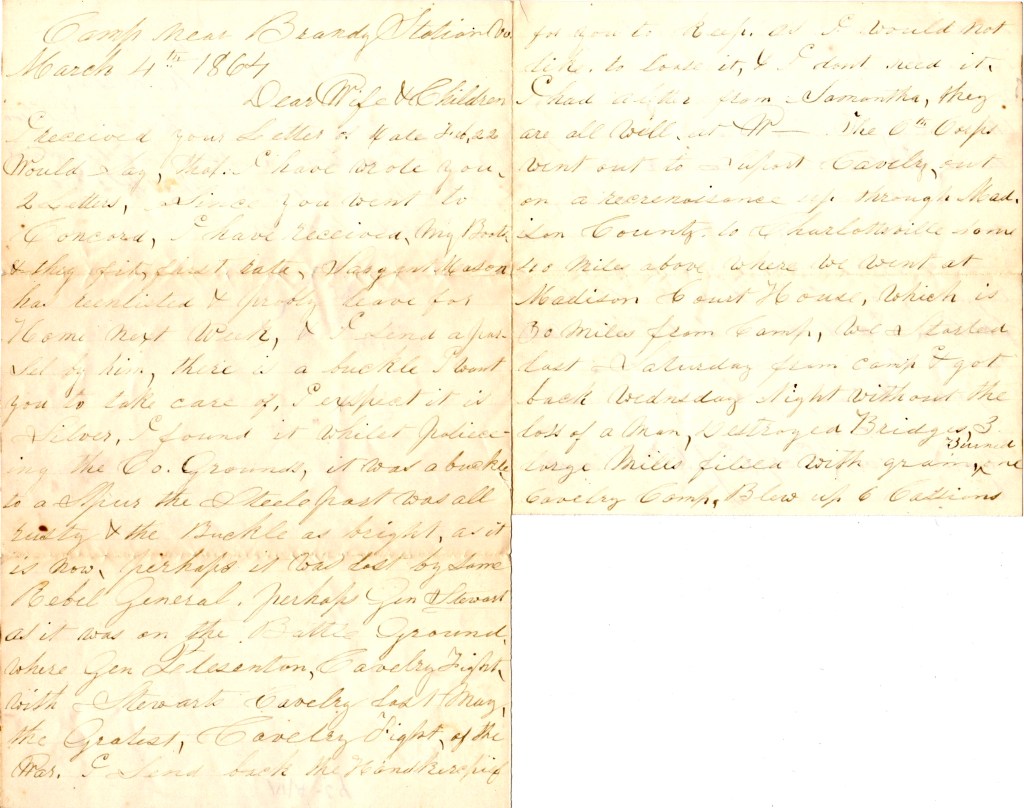 Camp near Brandy Station Va
March 4th 1864
Dear Wife & Children
I received your Letter of date Feb, 22
Would Say, that I have wrote you,
2 Letters, Since you went to
Concord, I have received, My Boots
& they fit, first rate, Sargent Mason
has reenlisted & probly leave for
Home next Week, & I Send a par-
sel by him, there is a buckle I want
you to take care of, I expect it is
Silver, I found it whilst police-
ing the Co. Grounds, it was a buckle,
to a Spur the Steel part was all
rusty & the Buckle as bright, as it
is now, perhaps it was lost by Some
Rebel General. perhaps Gen Stewart
as it was on the Battle Ground,
where Gen Plesenton, Cavelry Fight,
with Stewarts Cavelry last May,
the Gratest, Cavelry Fight, of the
War. I Send back the Handkerchif
for you to keep. as I would not
like. to loose it, & I dont need it,
I had letter from Samantha, they
are all Well. at W— The 6th Corps
went out to Suport Cavelry, out
on a recrenoissance up through Mad-
ison County. to Charlottsville some
40 miles above where we went at
Madison Court House, which is
30 miles from Camp, We Started
last Saturday from camp & got
back Wednsday Night without the
loss of a man, Destroyed Bridges, 3
large Mills filled with grain, Burned one
Cavelry Camp, Blew up 6 Cassions